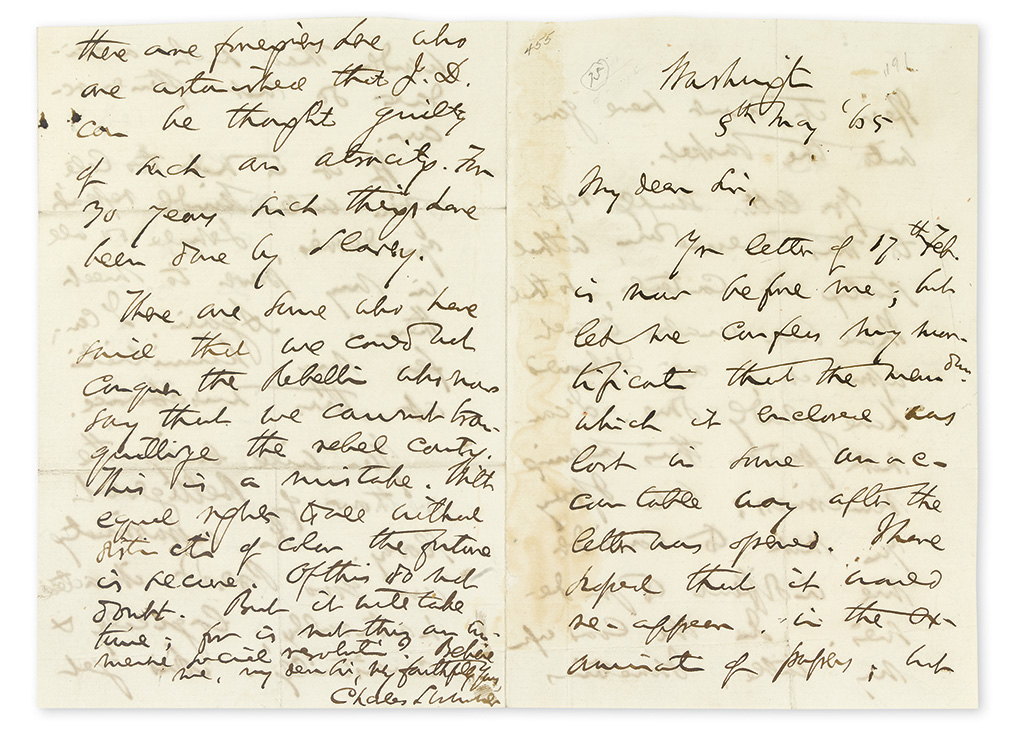 Washington
5th May '65
My dear Sir,
Yr letter of 17th Feb.
is now before me; but
let me confess my mor-
tification that the memdum.
which it enclosed was
lost in some unac-
countable way after the
letter was opened. I have
hoped that it would
re-appear in the ex-
amination of papers; but
there are foreigners here who
are astonished that J. D.
can be thought guilty
of such an atrocity. For
30 years such things have
been done by Slavery.
There are some who have
said that we could not
conquer the Rebellion who now
say that we cannot tran-
quillize the rebel country.
This is a mistake. With
equal rights to all without
distinction of color the future
is secure. Of this do not
doubt. But it will take
time; for is not this an im-
mense social revolution? Believe
me, my dear Sir, very faithfully Yours,
Charles Sumner
455
75